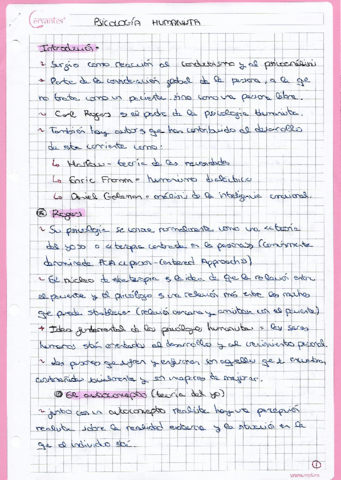 PSICOLOGÍA HUMANISTA
Introducción.
Surgió como reacción al conductismo y al psicoanálisis
Parte de la consideración global de la persona, a la que
no trata como un paciente, sino como una persona libre.
Carl Rogers es el padre de la psicología humanista.
También hay autores que han contribuido al desarrollo
de esta corriente como:
Maslow - teoría de las necesidades
Eric Fromm - humanismo dialéctico
Daniel Goleman - análisis de la inteligencia emocional.
Rogers
Su psicología se conoce normalmente como una teoría
del yo o terapia centrada en la persona (comúnmente
denominada PCA person-centered Approach)
El núcleo de esta terapia es la idea de que la relación entre
el paciente y el psicólogo es una relación más entre las muchas
que puede establecer (relación cercana y con el paciente)
Idea fundamental de los psicólogos humanistas = los seres
humanos están orientados al desarrollo y al crecimiento personal.
Las personas que sufren y
y sin de mejorar.
El autoconcepto (teoría del yo)
Junto con un autoconcepto realista hay una percepción
realista sobre la realidad externa y la situación en la
que el individuo está.
1